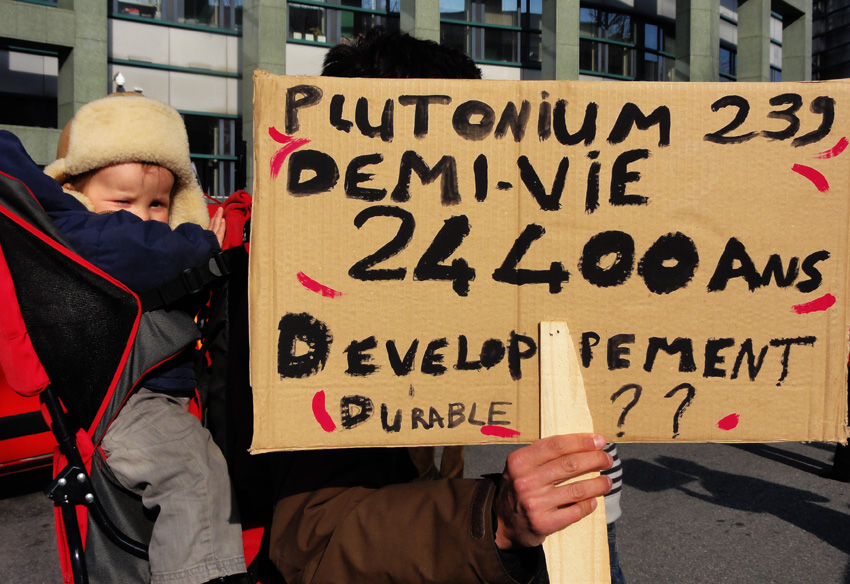 PLUTONIUM 239
DEMI-ViE
24 400 ANS
DEVELOPPEMENT
DURABLE ??